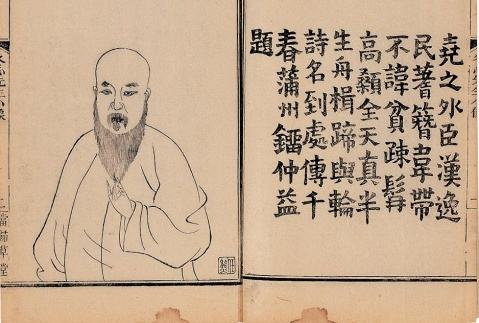 堯之外臣漢逸
民蓍簪韋帶
不諱貧疎髯
高顴全天真半
生舟楫蹄與輪
詩名到處傳千
春蒲州鐳仲益
題
二
當歸草堂